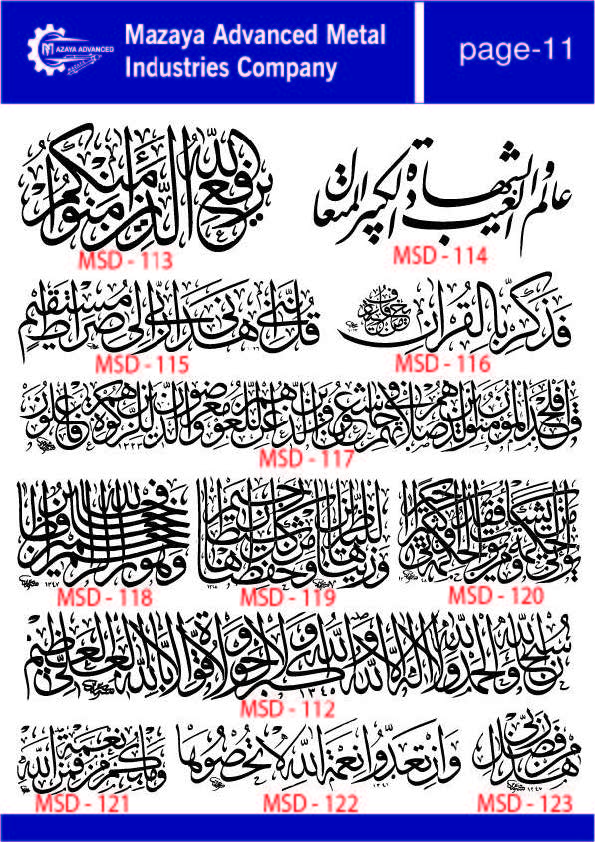 Mazaya Advanced Metal
Industries Company
page-11
MAZAYA ADVANCED
يرفع الله الذين آمنوا منكم
MSD - 113
عالم الغيب والشهادة الكبير المتعال
MSD - 114
قل إنني هداني ربي إلى صراط مستقيم
MSD - 115
فذكر بالقرآن من يخاف وعيد
MSD - 116
قد أفلح المؤمنون الذين هم في صلاتهم خاشعون والذين هم عن اللغو معرضون والذين هم للزكوة فاعلون
MSD - 117
فالله خير حافظا وهو أرحم الراحمين
MSD - 118
وزيناها للناظرين وحفظناها من كل شيطان رجيم
MSD - 119
يؤتي الحكمة من يشاء ومن يؤت الحكمة فقد أوتي خيرا كثيرا
MSD - 120
سبحان الله والحمد لله ولا إله إلا الله والله أكبر ولا حول ولا قوة إلا بالله العلي العظيم
MSD - 112
وما بكم من نعمة فمن الله
MSD - 121
وإن تعدوا نعمة الله لا تحصوها
MSD - 122
هذا من فضل ربي
MSD - 123